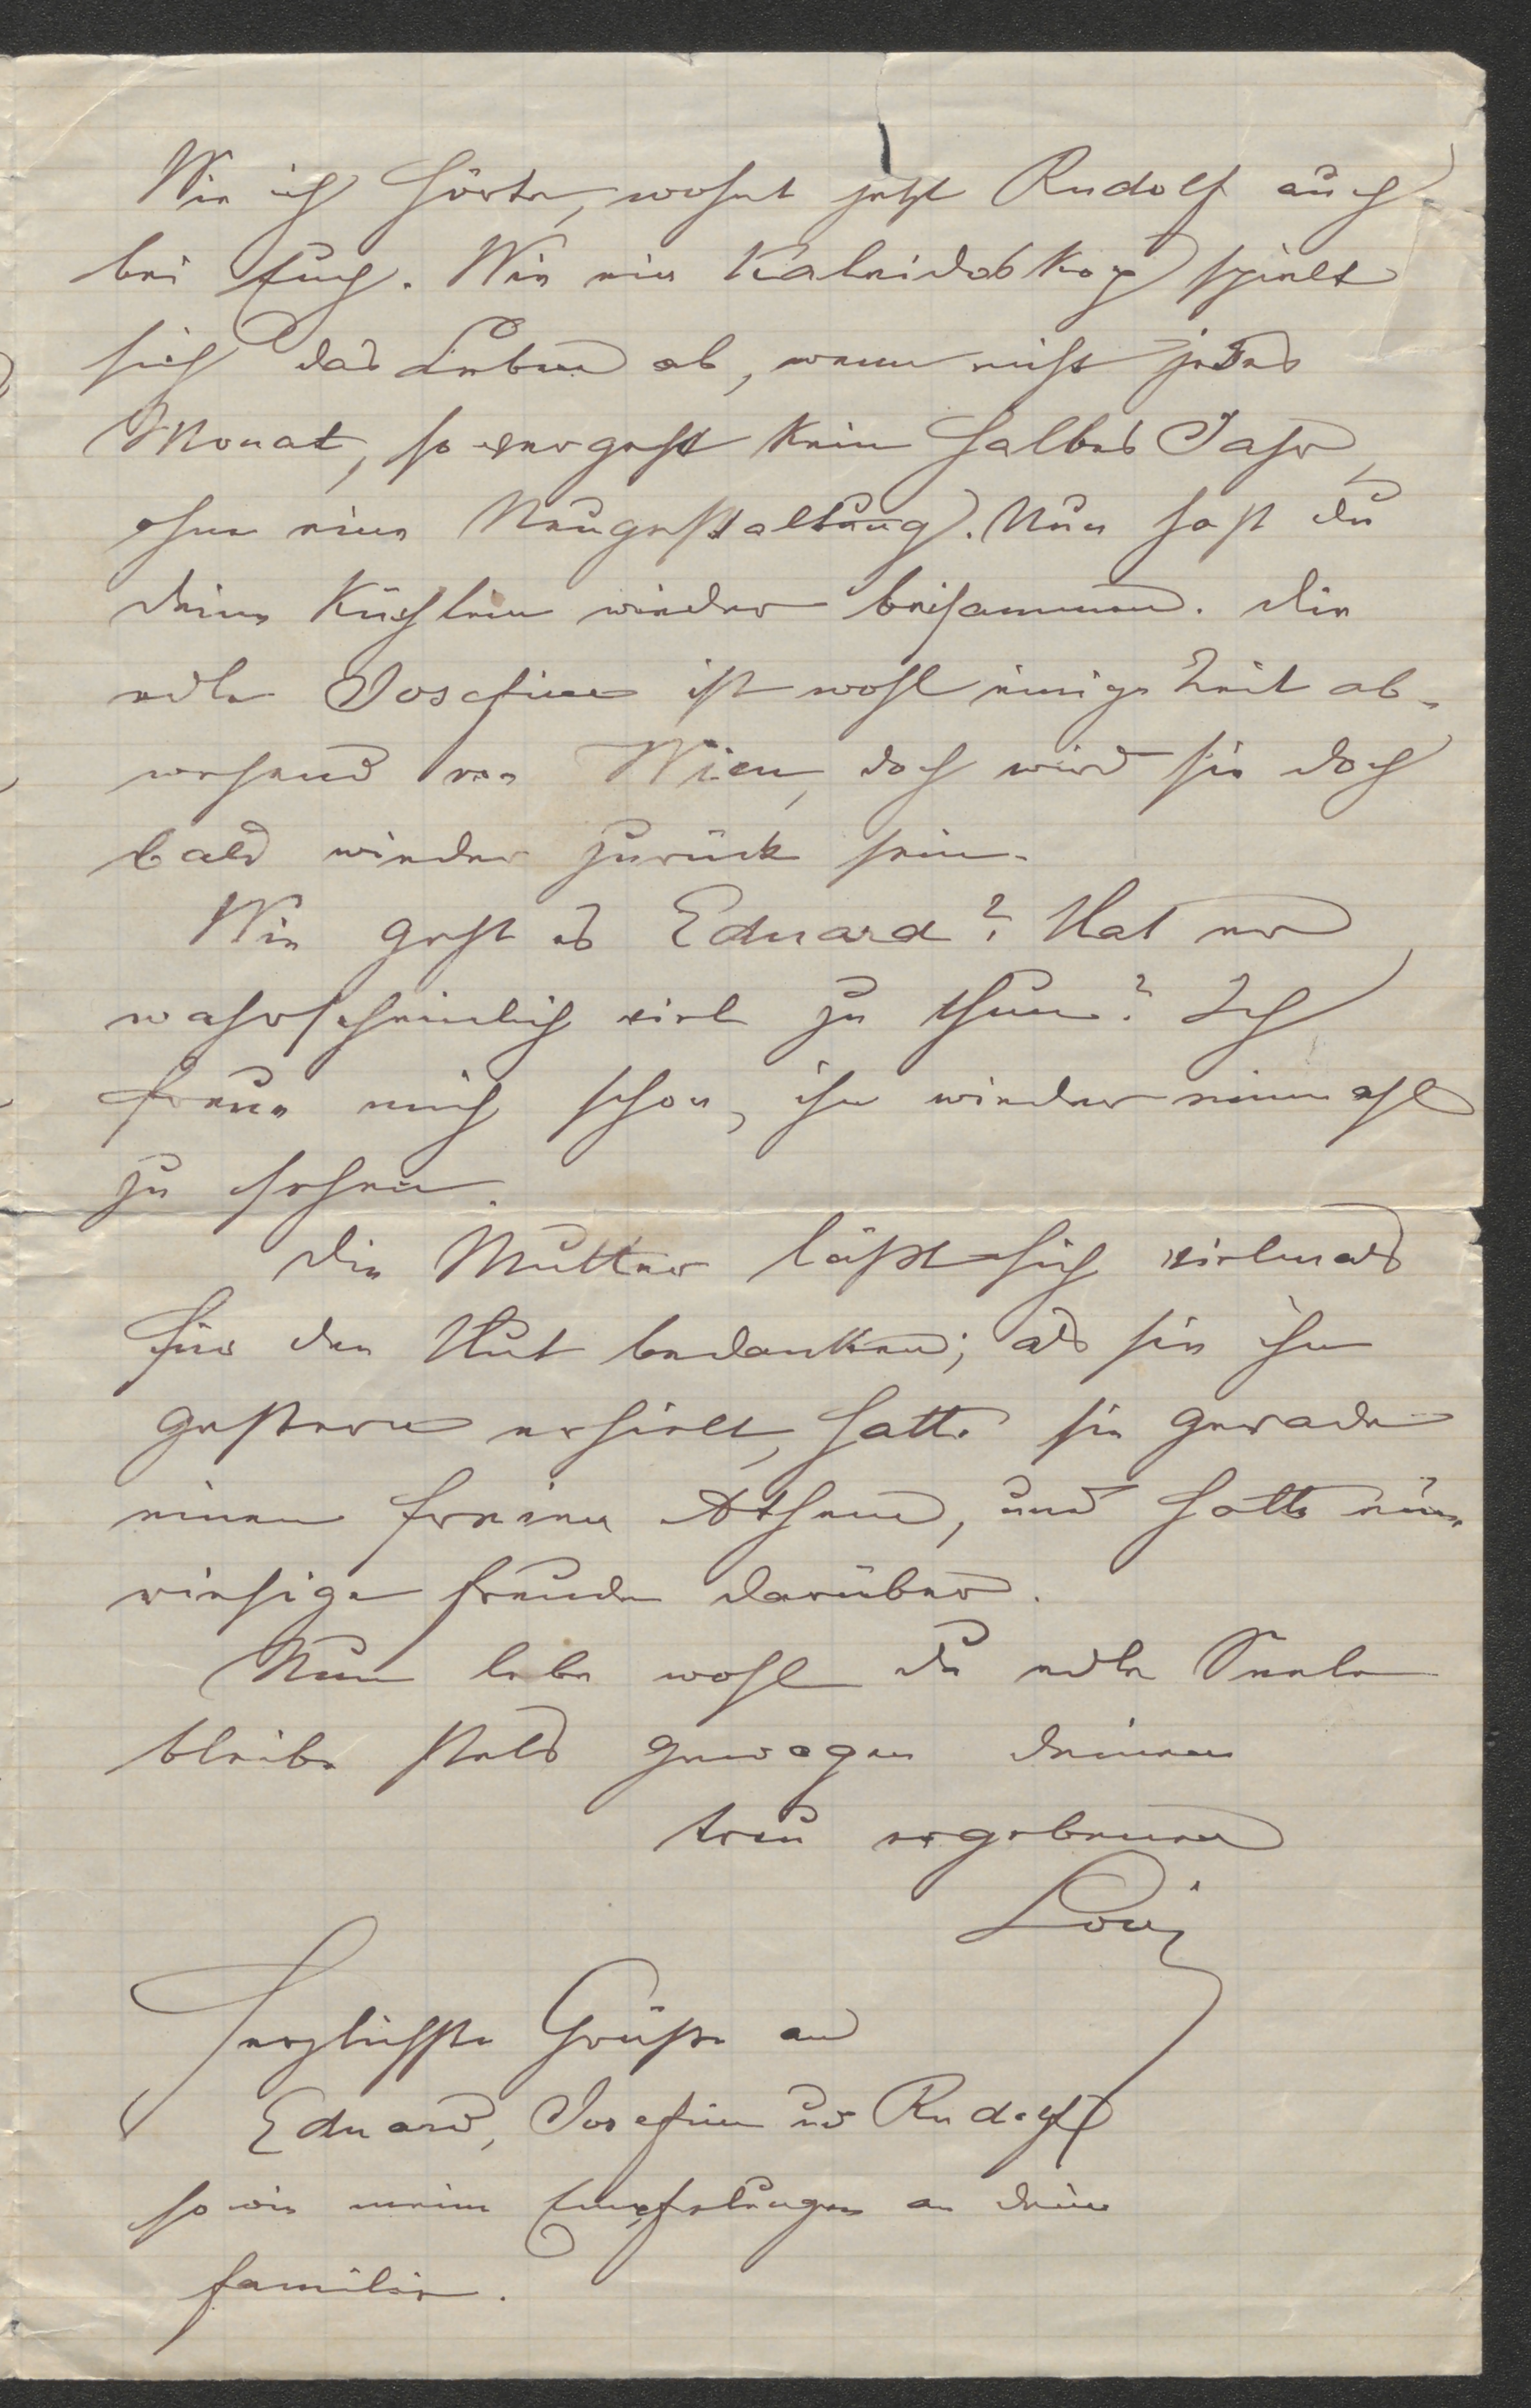 Wie ich hörte, wohnt jetzt Rudolf auch
bei Euch. Wie ein Kaleidoskop spielt
sich das Leben ab, wenn nicht jedes
Monat, so vergeht kein halbes Jahr,
ohne eine Neugestaltung. Nun hast du
deine Küchlein wieder beisammen. Die
edle Josefine ist wohl einige Zeit ab-
wesend von Wien, doch wird sie doch
bald wieder zurück sein.
Wie geht es Eduard? Hat er
wahrscheinlich viel zu thun? Ich
freue mich schon, ihn wieder einmahl
zu sehen.
Die Mutter läßt sich vielmals
für den Hut bedanken; als sie ihn
gestern erhielt, hatte sie gerade
einen freien Athem, und hatte eine
riesige Freude darüber.
Nun lebe wohl du edle Seele
bleibe stets gewogen deinem
treu ergebenen
Loui
Herzlichste Grüße an
Eduard, Josefine und Rudolf
so wie meine Empfelungen an deine
Familie.